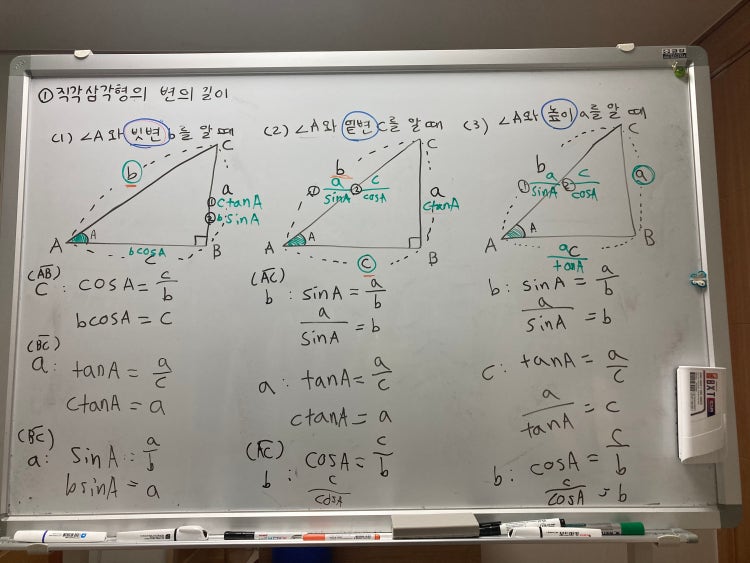 ① 직각삼각형의 변의 길이
(1) ∠A와 빗변 b를 알 때
b
C
a
① ctanA
② bsinA
A
A
bcosA
c
B
(AB)
C : cosA = c/b
bcosA = c
(BC)
a : tanA = a/c
ctanA = a
(BC)
a : sinA = a/b
bsinA = a
(2) ∠A와 밑변 c를 알 때
b
C
① a/sinA ② c/cosA
a
ctanA
A
A
c
B
(AC)
b : sinA = a/b
a/sinA = b
a : tanA = a/c
ctanA = a
(AC)
b : cosA = c/b
c/cosA
(3) ∠A와 높이 a를 알 때
C
b
① a/sinA ② c/cosA
a
A
A
B
c
a/tanA
b : sinA = a/b
a/sinA = b
c : tanA = a/c
a/tanA = c
b : cosA = c/b
c/cosA = b
BXT